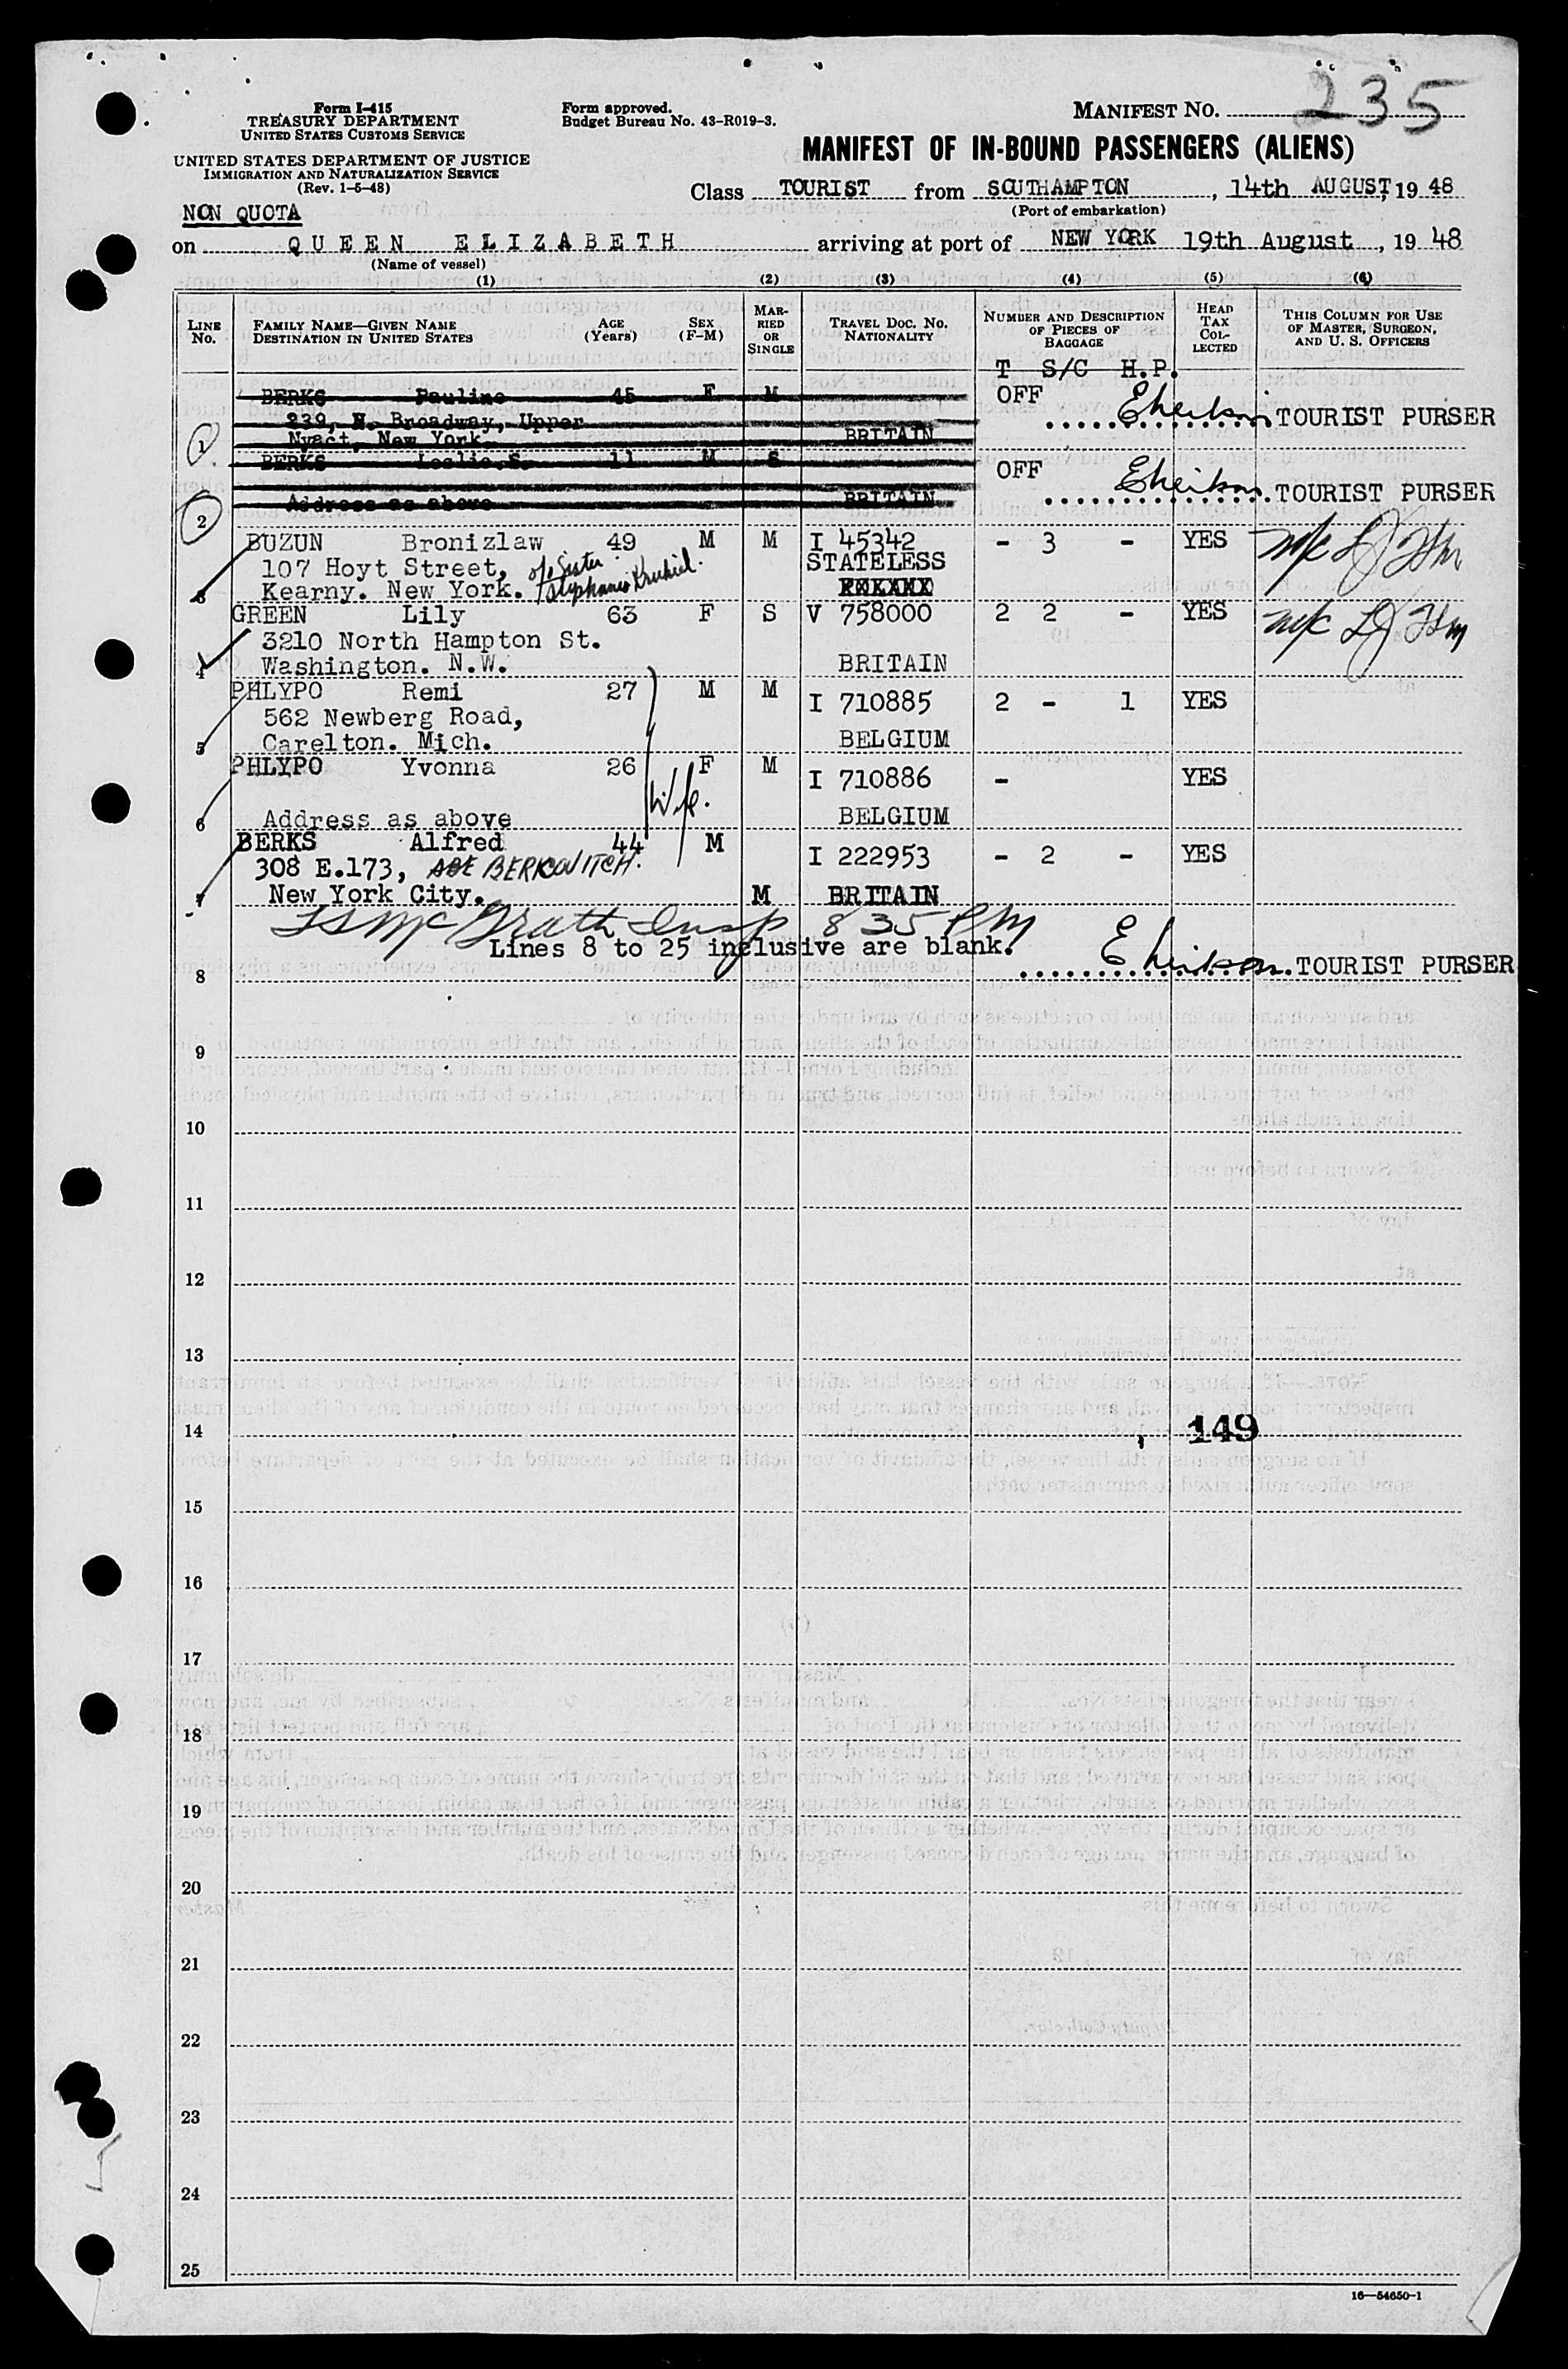 Form I-415
TREASURY DEPARTMENT
UNITED STATES CUSTOMS SERVICE
UNITED STATES DEPARTMENT OF JUSTICE
IMMIGRATION AND NATURALIZATION SERVICE
(Rev. 1-5-48)
Form approved.
Budget Bureau No. 43-R019-3.
MANIFEST NO. 235
MANIFEST OF IN-BOUND PASSENGERS (ALIENS)
Class TOURIST from SOUTHAMPTON, 14th AUGUST, 19 48
(Port of embarkation)
NON QUOTA
on QUEEN ELIZABETH arriving at port of NEW YORK 19th August, 19 48
(Name of vessel)
(1) (2) (3) (4) (5) (6)
LINE No.
FAMILY NAME—GIVEN NAME
DESTINATION IN UNITED STATES
AGE (Years)
SEX (F-M)
MARRIED OR SINGLE
TRAVEL DOC. NO.
NATIONALITY
NUMBER AND DESCRIPTION OF PIECES OF BAGGAGE
HEAD TAX COLLECTED
THIS COLUMN FOR USE OF MASTER, SURGEON, AND U. S. OFFICERS
T S/C H.P.
BERKS Pauline 45 F M OFF
239, N. Broadway, Upper TOURIST PURSER
1 Nyact, New York. BRITAIN
BERKS Leslie S. 11 M S OFF
TOURIST PURSER
2 Address as above BRITAIN
BUZUN Bronizlaw 49 M M I 45342 - 3 - YES
107 Hoyt Street, Sister STATELESS
3 Kearny. New York.
GREEN Lily 63 F S V 758000 2 2 - YES
3210 North Hampton St.
4 Washington. N.W. BRITAIN
PHLYPO Remi 27 M M I 710885 2 - 1 YES
562 Newberg Road,
5 Carelton. Mich. BELGIUM
PHLYPO Yvonna 26 F M I 710886 - YES
Wife.
6 Address as above BELGIUM
BERKS Alfred 44 M I 222953 - 2 - YES
308 E.173, ABE BERKOVITCH.
7 New York City. M BRITAIN
McGrath Insp 8 35 PM
Lines 8 to 25 inclusive are blank.
8 TOURIST PURSER
9
10
11
12
13
14 149
15
16
17
18
19
20
21
22
23
24
25
16—54650-1